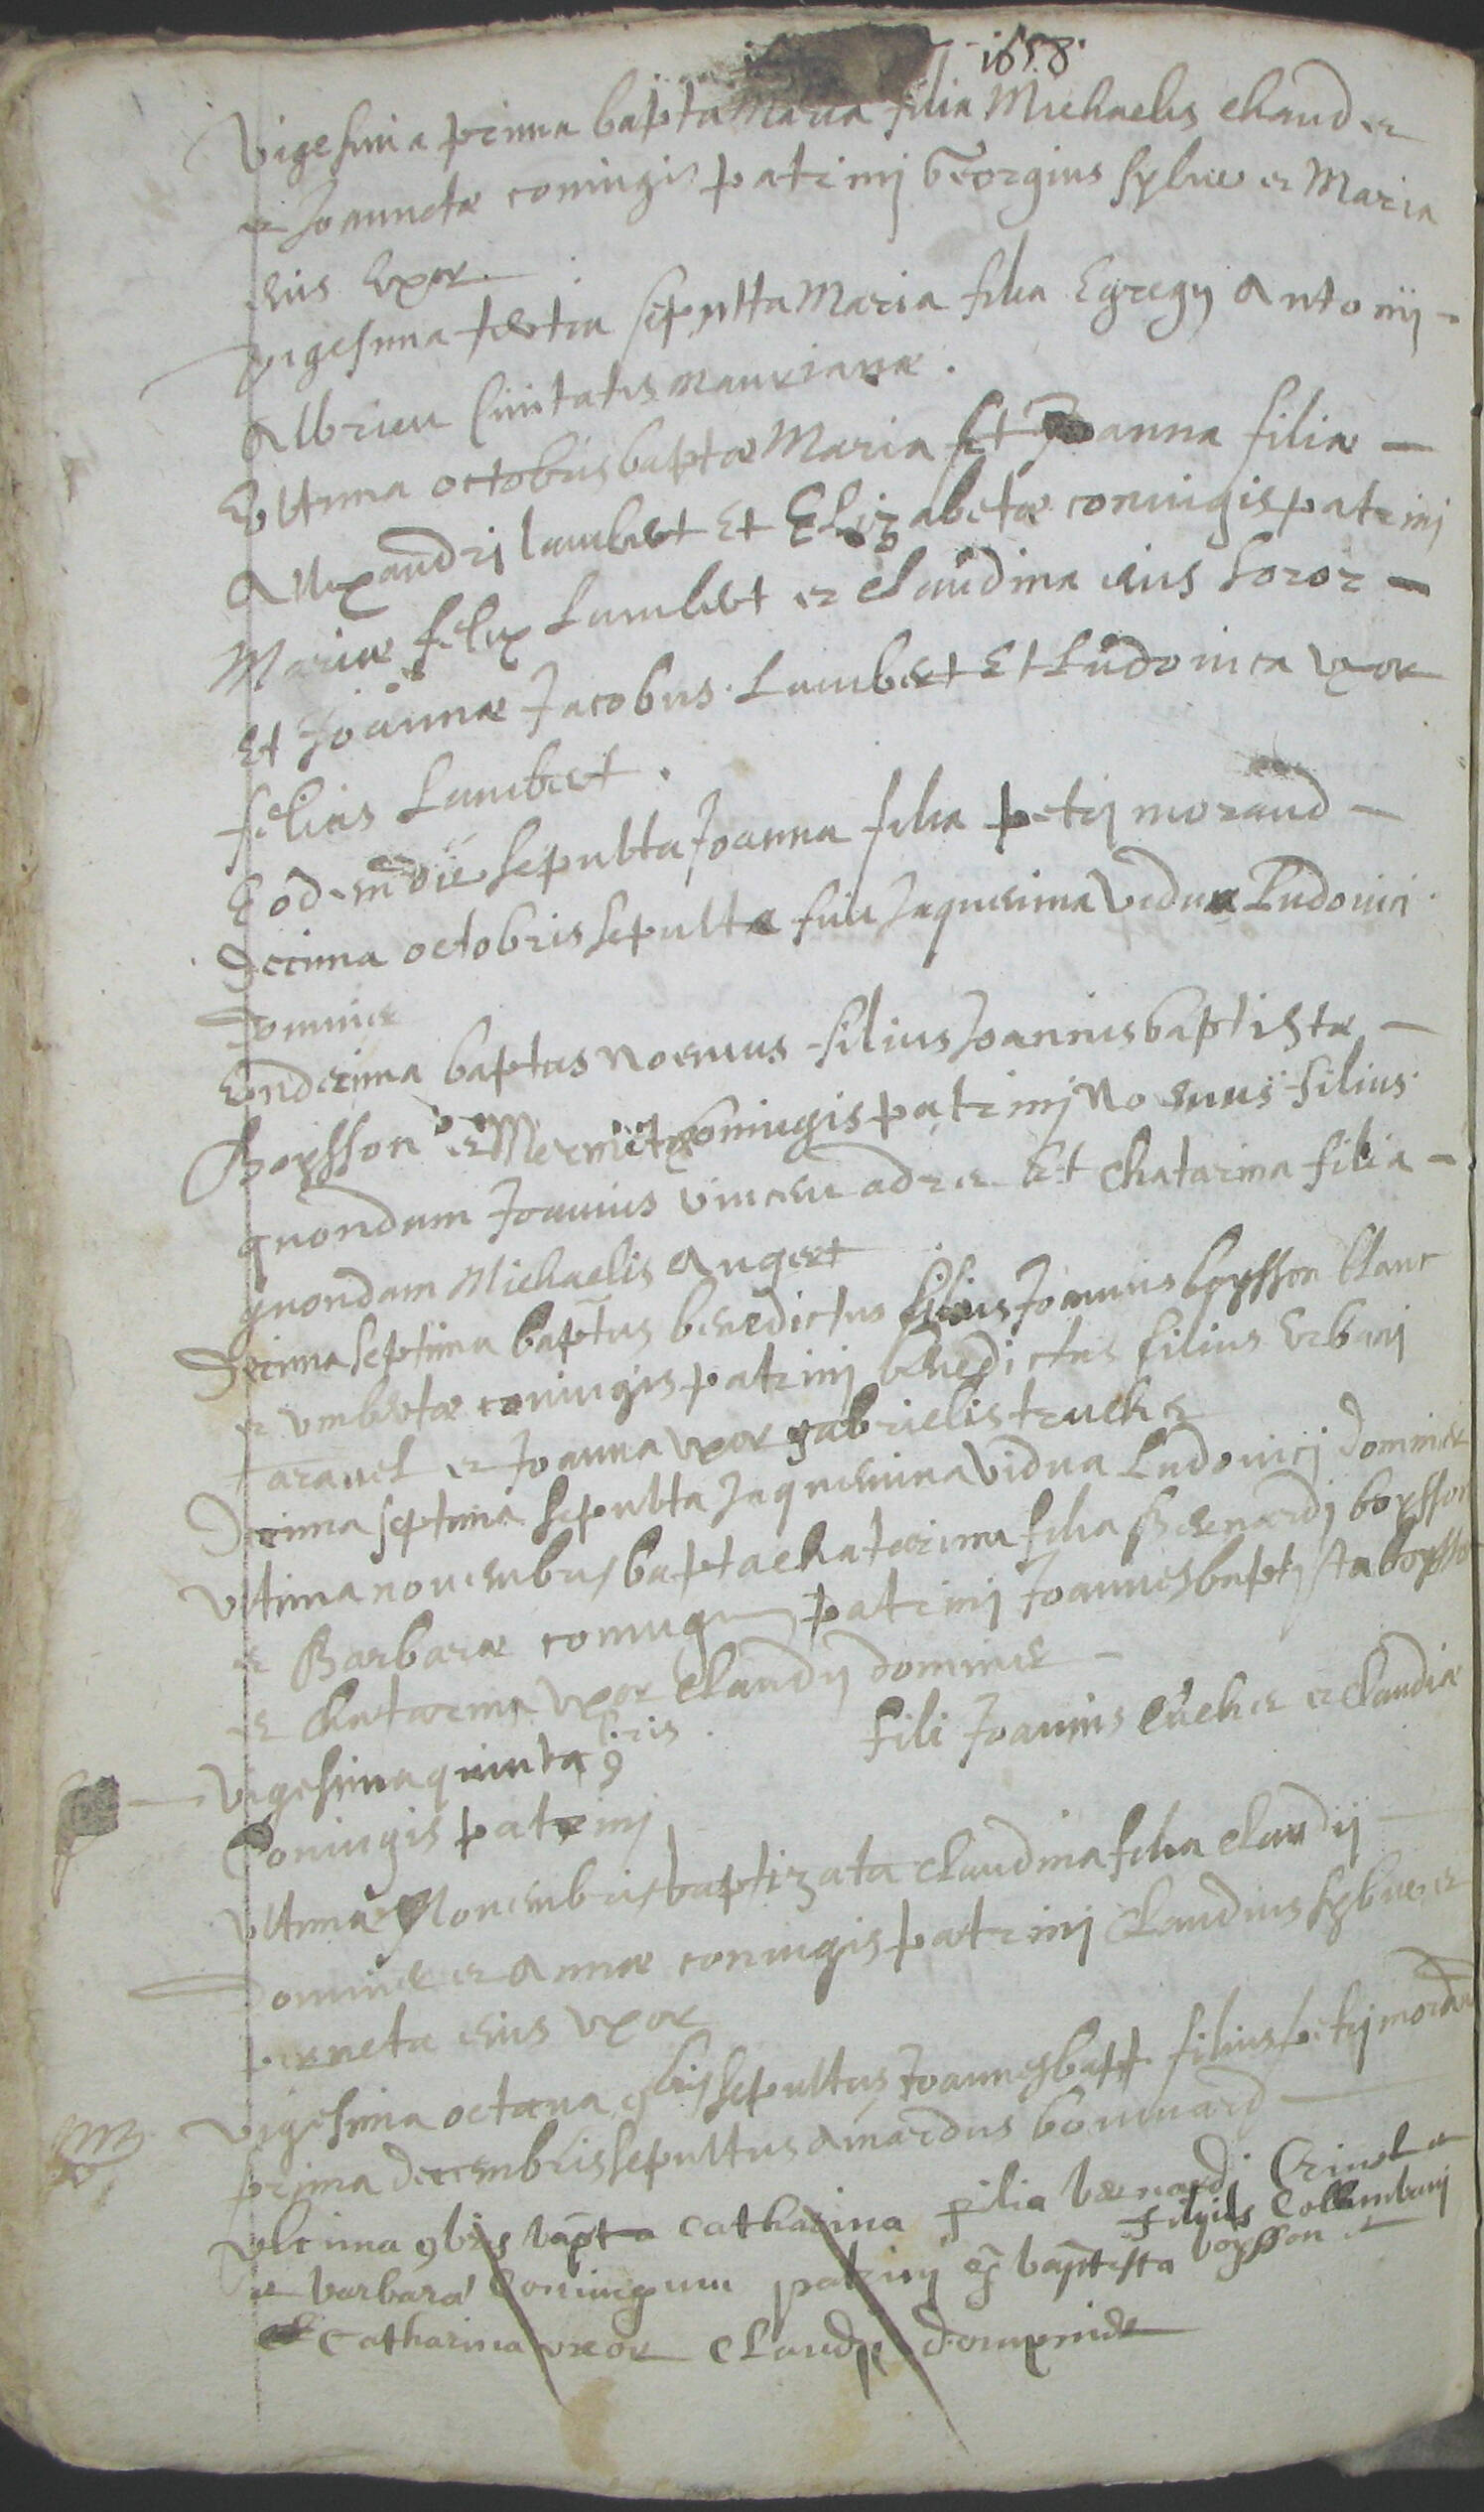 1658.
Vigesima prima bapta Maria filia Michaelis chaud et
et Joannetæ coniugis patrinj Georgius sylve et Maria
eius Uxor.
Vigesima tertia sepulta Maria filia Egregij Antonij
Albrieu Civitatis maurianæ.
Ultima octobris baptæ Maria Et Joanna filiæ
Allexandrj lambert Et Elizabetæ coniugis patrinj
Mariæ felix Lambert et claudina eius soror
Et Joannæ Jacobus Lambert Et Ludovica uxor
felicis Lambert.
Eodem die sepulta Joanna filia petrj morand
Decima octobris sepulta fuit Jaquemina Vidua Ludovici
Domine
Undecima baptus noemus filius Joannis baptistæ
Boysson et Mermetæ coniugis patrinj Noemus filius
quondam Joannis vincen adre Et Chatarina filia
quondam Michaelis Augert
Decima septima baptus benedictus filius Joannis boysson blanc
et umbertæ coniugis patrinj benedictus filius Urbanj
taravel et Joanna uxor gabrielis truche
Decima septima sepulta Jaquemina Vidua Ludovicj domine
Ultima novembris bapta chatarina filia Bernardj boysson
et Barbaræ coniugum patrinj Joannes baptista boysson
et Chatarina Uxor Claudij domine
Vigesima quinta 9bris. fili Joannis cuche et Claudiæ
Coniugis patrinj
Ultima Novembris baptizata claudina filia claudij
Domine et Annæ coniugis patrinj claudius sylve et
perneta eius uxor
Vigesima octava 9bris sepultus Joannes bapt. filius petrj morand
prima decembris sepultus Amardus bonnard
ultima 9bris bapta catharina filia bernardj Crinel et
filius Collumbanj
et barbara Coniugum patrinj baptista boysson et
et Catharina uxor Claudij domine